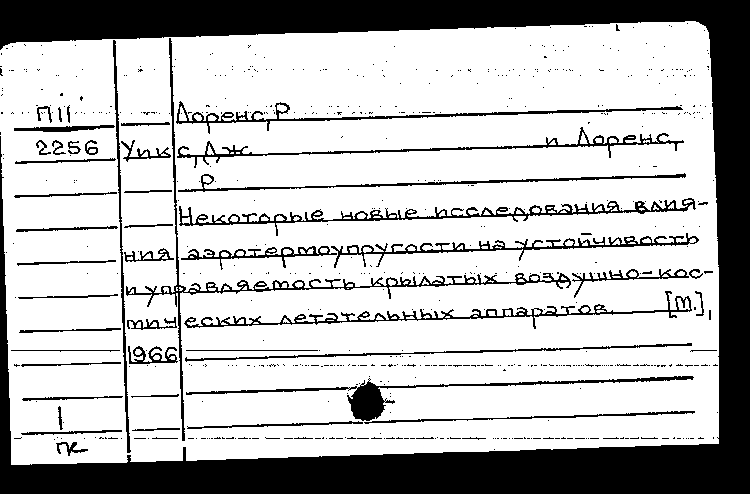 П11 Лоренс, Р
2256 Уикс, Дж. и Лоренс,
Р
Некоторые новые исследования влия-
ния аэротермоупругости на устойчивость
и управляемость крылатых воздушно-кос-
мических летательных аппаратов. [М.],
1966
1
пк